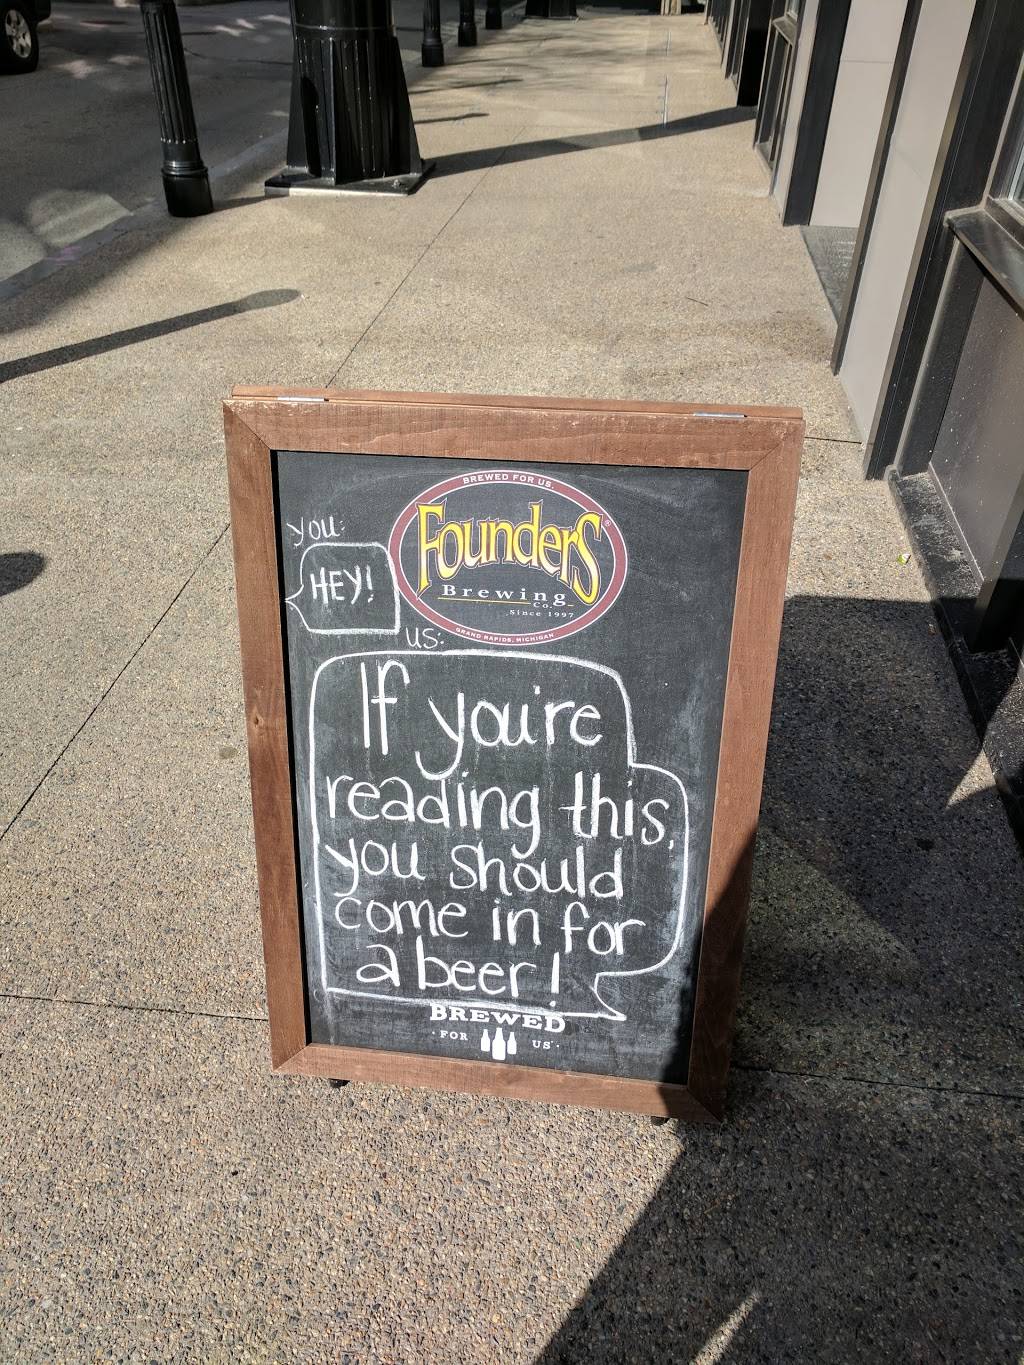 BREWED FOR US.
Founders®
Brewing
Co.
Since 1997
GRAND RAPIDS, MICHIGAN
you:
HEY!
us:
If you're
reading this,
you should
come in for
a beer!
BREWED
· FOR US ·